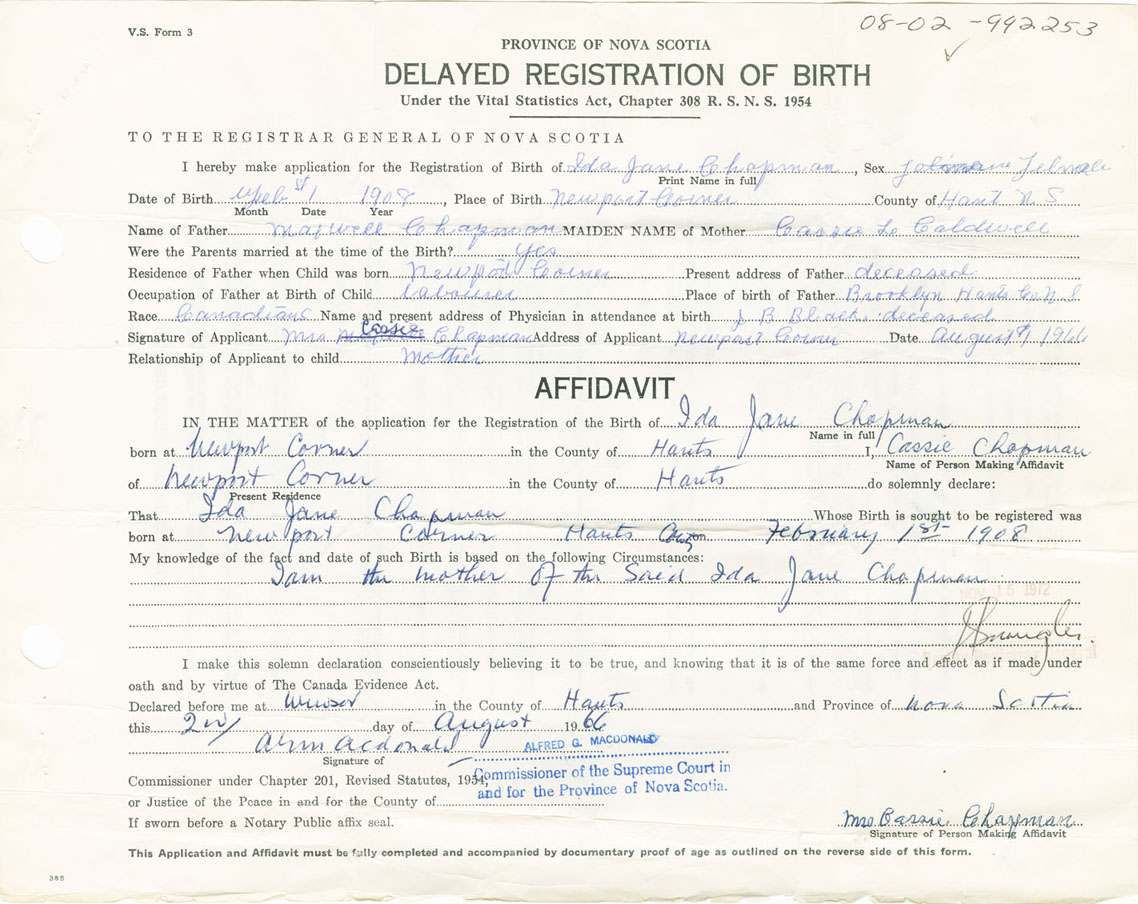 V.S. Form 3
08-02 -992253
PROVINCE OF NOVA SCOTIA
DELAYED REGISTRATION OF BIRTH
Under the Vital Statistics Act, Chapter 308 R. S. N. S. 1954
TO THE REGISTRAR GENERAL OF NOVA SCOTIA
I hereby make application for the Registration of Birth of Ida Jane Chapman, Sex Felmale
Print Name in full
Date of Birth Feb 1st 1908, Place of Birth Newport Corner County of Hant N S
Month Date Year
Name of Father Maxwell Chapman MAIDEN NAME of Mother Cassie Caldwell
Were the Parents married at the time of the Birth? Yes
Residence of Father when Child was born Newport Corner Present address of Father deceased
Occupation of Father at Birth of Child labourer Place of birth of Father Brooklyn Hants Co N S
Race Canadians Name and present address of Physician in attendance at birth J B Black deceased
Signature of Applicant Mrs Cassie Chapman Address of Applicant Newport Corner Date August 1966
Relationship of Applicant to child Mother
AFFIDAVIT
IN THE MATTER of the application for the Registration of the Birth of Ida Jane Chapman
Name in full
born at Newport Corner in the County of Hants I, Cassie Chapman
Name of Person Making Affidavit
of Newport Corner in the County of Hants do solemnly declare:
Present Residence
That Ida Jane Chapman Whose Birth is sought to be registered was
born at Newport Corner Hants County on February 1st 1908
My knowledge of the fact and date of such Birth is based on the following Circumstances:
I am the mother of the said Ida Jane Chapman
NOV 15 1972
I make this solemn declaration conscientiously believing it to be true, and knowing that it is of the same force and effect as if made under
oath and by virtue of The Canada Evidence Act.
Declared before me at Windsor in the County of Hants and Province of Nova Scotia
this 2nd day of August 1966
ALFRED G. MACDONALD
Signature of
Commissioner under Chapter 201, Revised Statutes, 1954,
Commissioner of the Supreme Court in
and for the Province of Nova Scotia.
or Justice of the Peace in and for the County of
If sworn before a Notary Public affix seal.
Mrs Cassie Chapman
Signature of Person Making Affidavit
This Application and Affidavit must be fully completed and accompanied by documentary proof of age as outlined on the reverse side of this form.
385